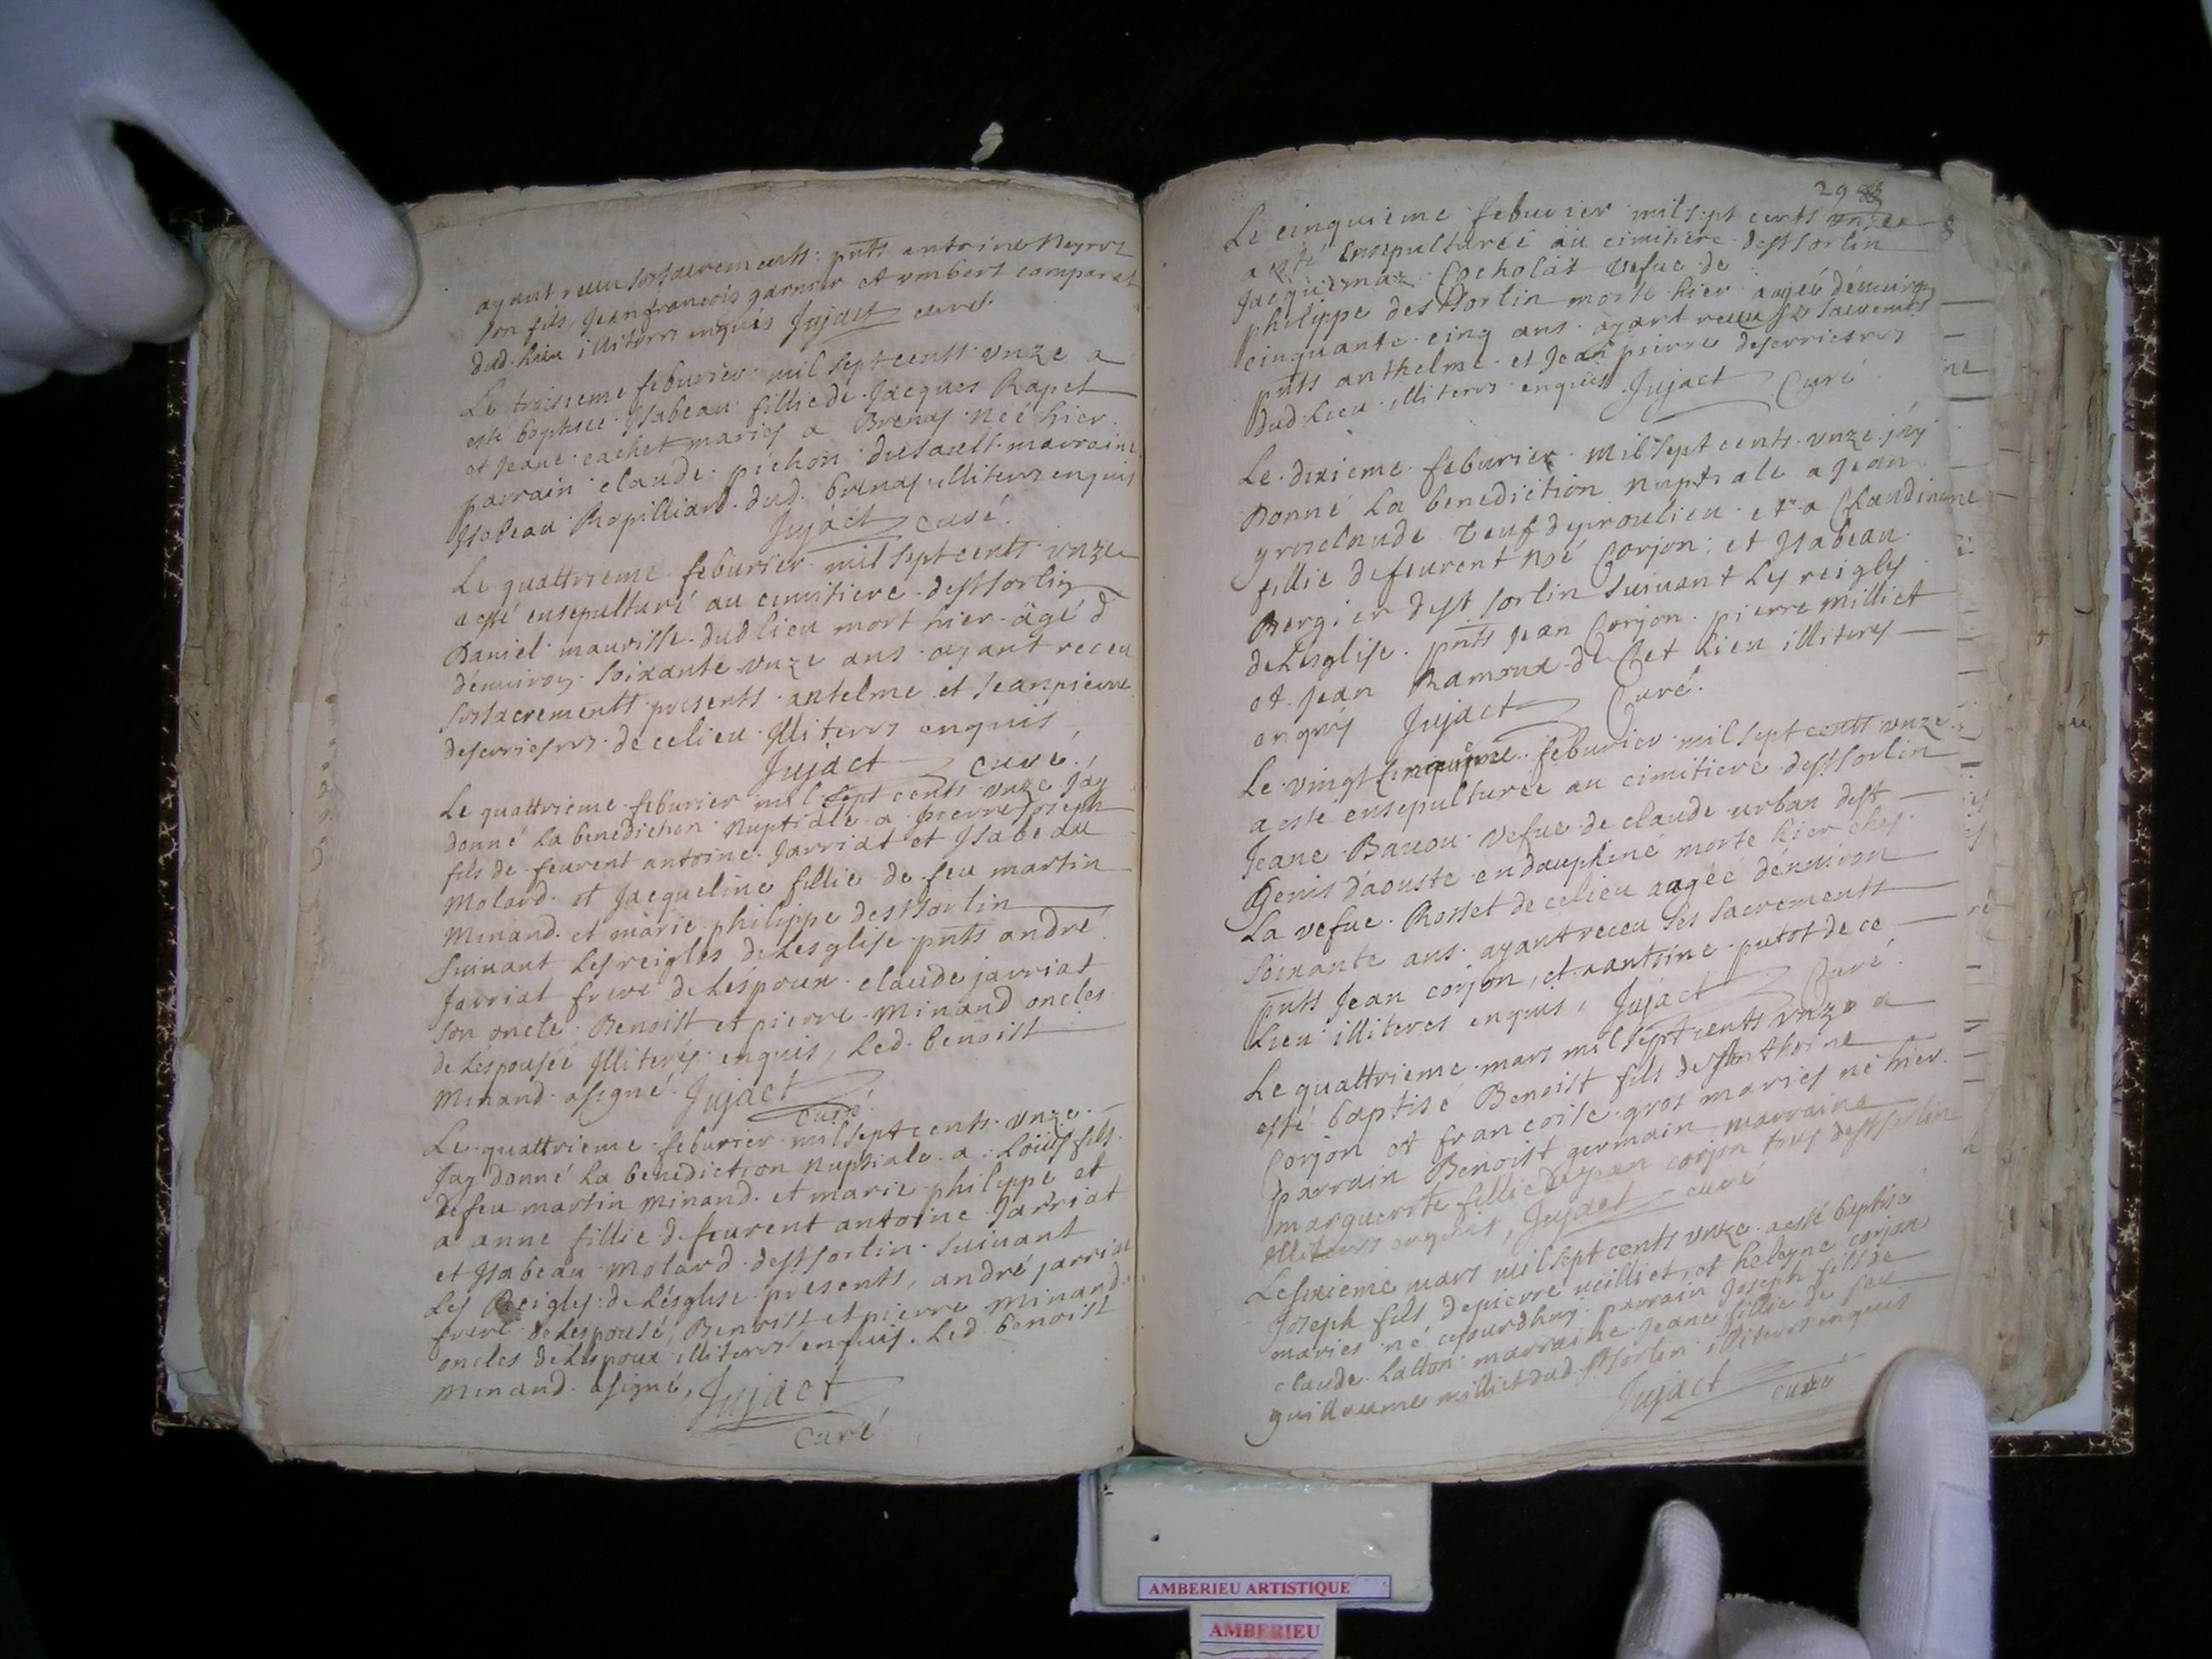 ayant receu ses sacrements: pnts antoine Neyret
son fils, Jean francois garnier et umbert comparet
dud. lieu illiteres enquis Jujact curé
Le troisieme feburier mil sept cents unze a
esté baptisée Isabeau fillie de Jacques Rapet
et Jeane cachet mariés a Brenas née hier
parrain claude pichon du sault marraine
Isabeau Ropilliard dud. brenas illiteres enquis
Jujact curé.
Le quattrieme feburier mil sept cents unze
a esté ensepulturé au cimitiere de st Sorlin
Daniel maurisse dud lieu mort hier âgé d
d'environ soixante unze ans ayant receu
ses sacrements presents antelme et Jean pierre
de celieu illiteres enquis
Jujact curé.
Le quattrieme feburier mil sept cents unze Jáy
donné la benediction Nuptiale a pierre Joseph
fils de feurent antoine Jarriat et Isabeau
Molard et Jacqueline fillie de feu martin
Minand et marie philippe de st Sorlin
suivant les reigles de Lesglise pnts andré
Jarriat frere de Lespoux claude jarriat
son oncle Benoist et pierre Minand oncles
de Lespousée illiterés enquis, Led. benoist
Minand asigné. Jujact
curé.
Le quattrieme feburier mil sept cents unze
Jay donné la benediction nuptiale a Loüis fils
de feu martin minand et marie philippe et
a anne fillie d feurent antoine Jarriat
et Isabeau Molard de st Sorlin suivant
les Reigles de Lésglise presents, andré jarriat
frere de Lespousé, Benoist et pierre Minand
oncles de Lespoux illiteres enquis. Led benoist
Minand asigné, Jujact
curé
29
Le cinquieme febuvier mil sept cents unze
a esté ensepulturée au cimitiere de st Sorlin
Jacquemaz Cocholat vefue de
philippe de st Sorlin morte hier aagée d'environ
cinquante cinq ans ayant receu ses sacrements
pnts anthelme et Jean pierre
dud Lieu illiteres enquis Jujact Curé
Le dixieme feburier mil sept cents unze jáy
Donné la benediction nuptiale a Jean
grosclaude veuf de proulieu et a Claudinene
fillie de feurent Noé Corjon, et Isabeau
Bergier de st Sorlin suivant les reigles
de Lesglise pnts Jean Corjon pierre Milliet
et Jean Ramoux de Cet Lieu illiteres
enquis Jujact Curé.
Le vingt feburier mil sept cents unze
a esté ensepulturée au cimitiere de st Sorlin
Jeane Bauou vefue de claude urban de st
Genis d'aouste en dauphiné morte hier ches
La vefue Rosset de celieu aagée d'environ
soixante ans ayant receu ses sacrements
pnts Jean corjon, et antoine putot de ce
Lieu illiteres enquis, Jujact Curé.
Le quattrieme mars mil sept cents unze a
esté baptisé Benoist fils de Anthoine
Corjon et francoise gros mariés né hier
parrain Benoist germain marraine
marguerite fillie de Jean corjon tous de st Sorlin
illiteres enquis, Jujact curé
Le sixieme mars mil sept cents unze a esté baptisé
Joseph fils de pierre milliet, et heleyne corjon
mariés né ce jourdhuy parrain Joseph fils de
claude Latton marraine Jeane fillie de feu
guillaume milliet dud St Sorlin illiteres enquis
Jujact curé
AMBERIEU ARTISTIQUE
AMBERIEU